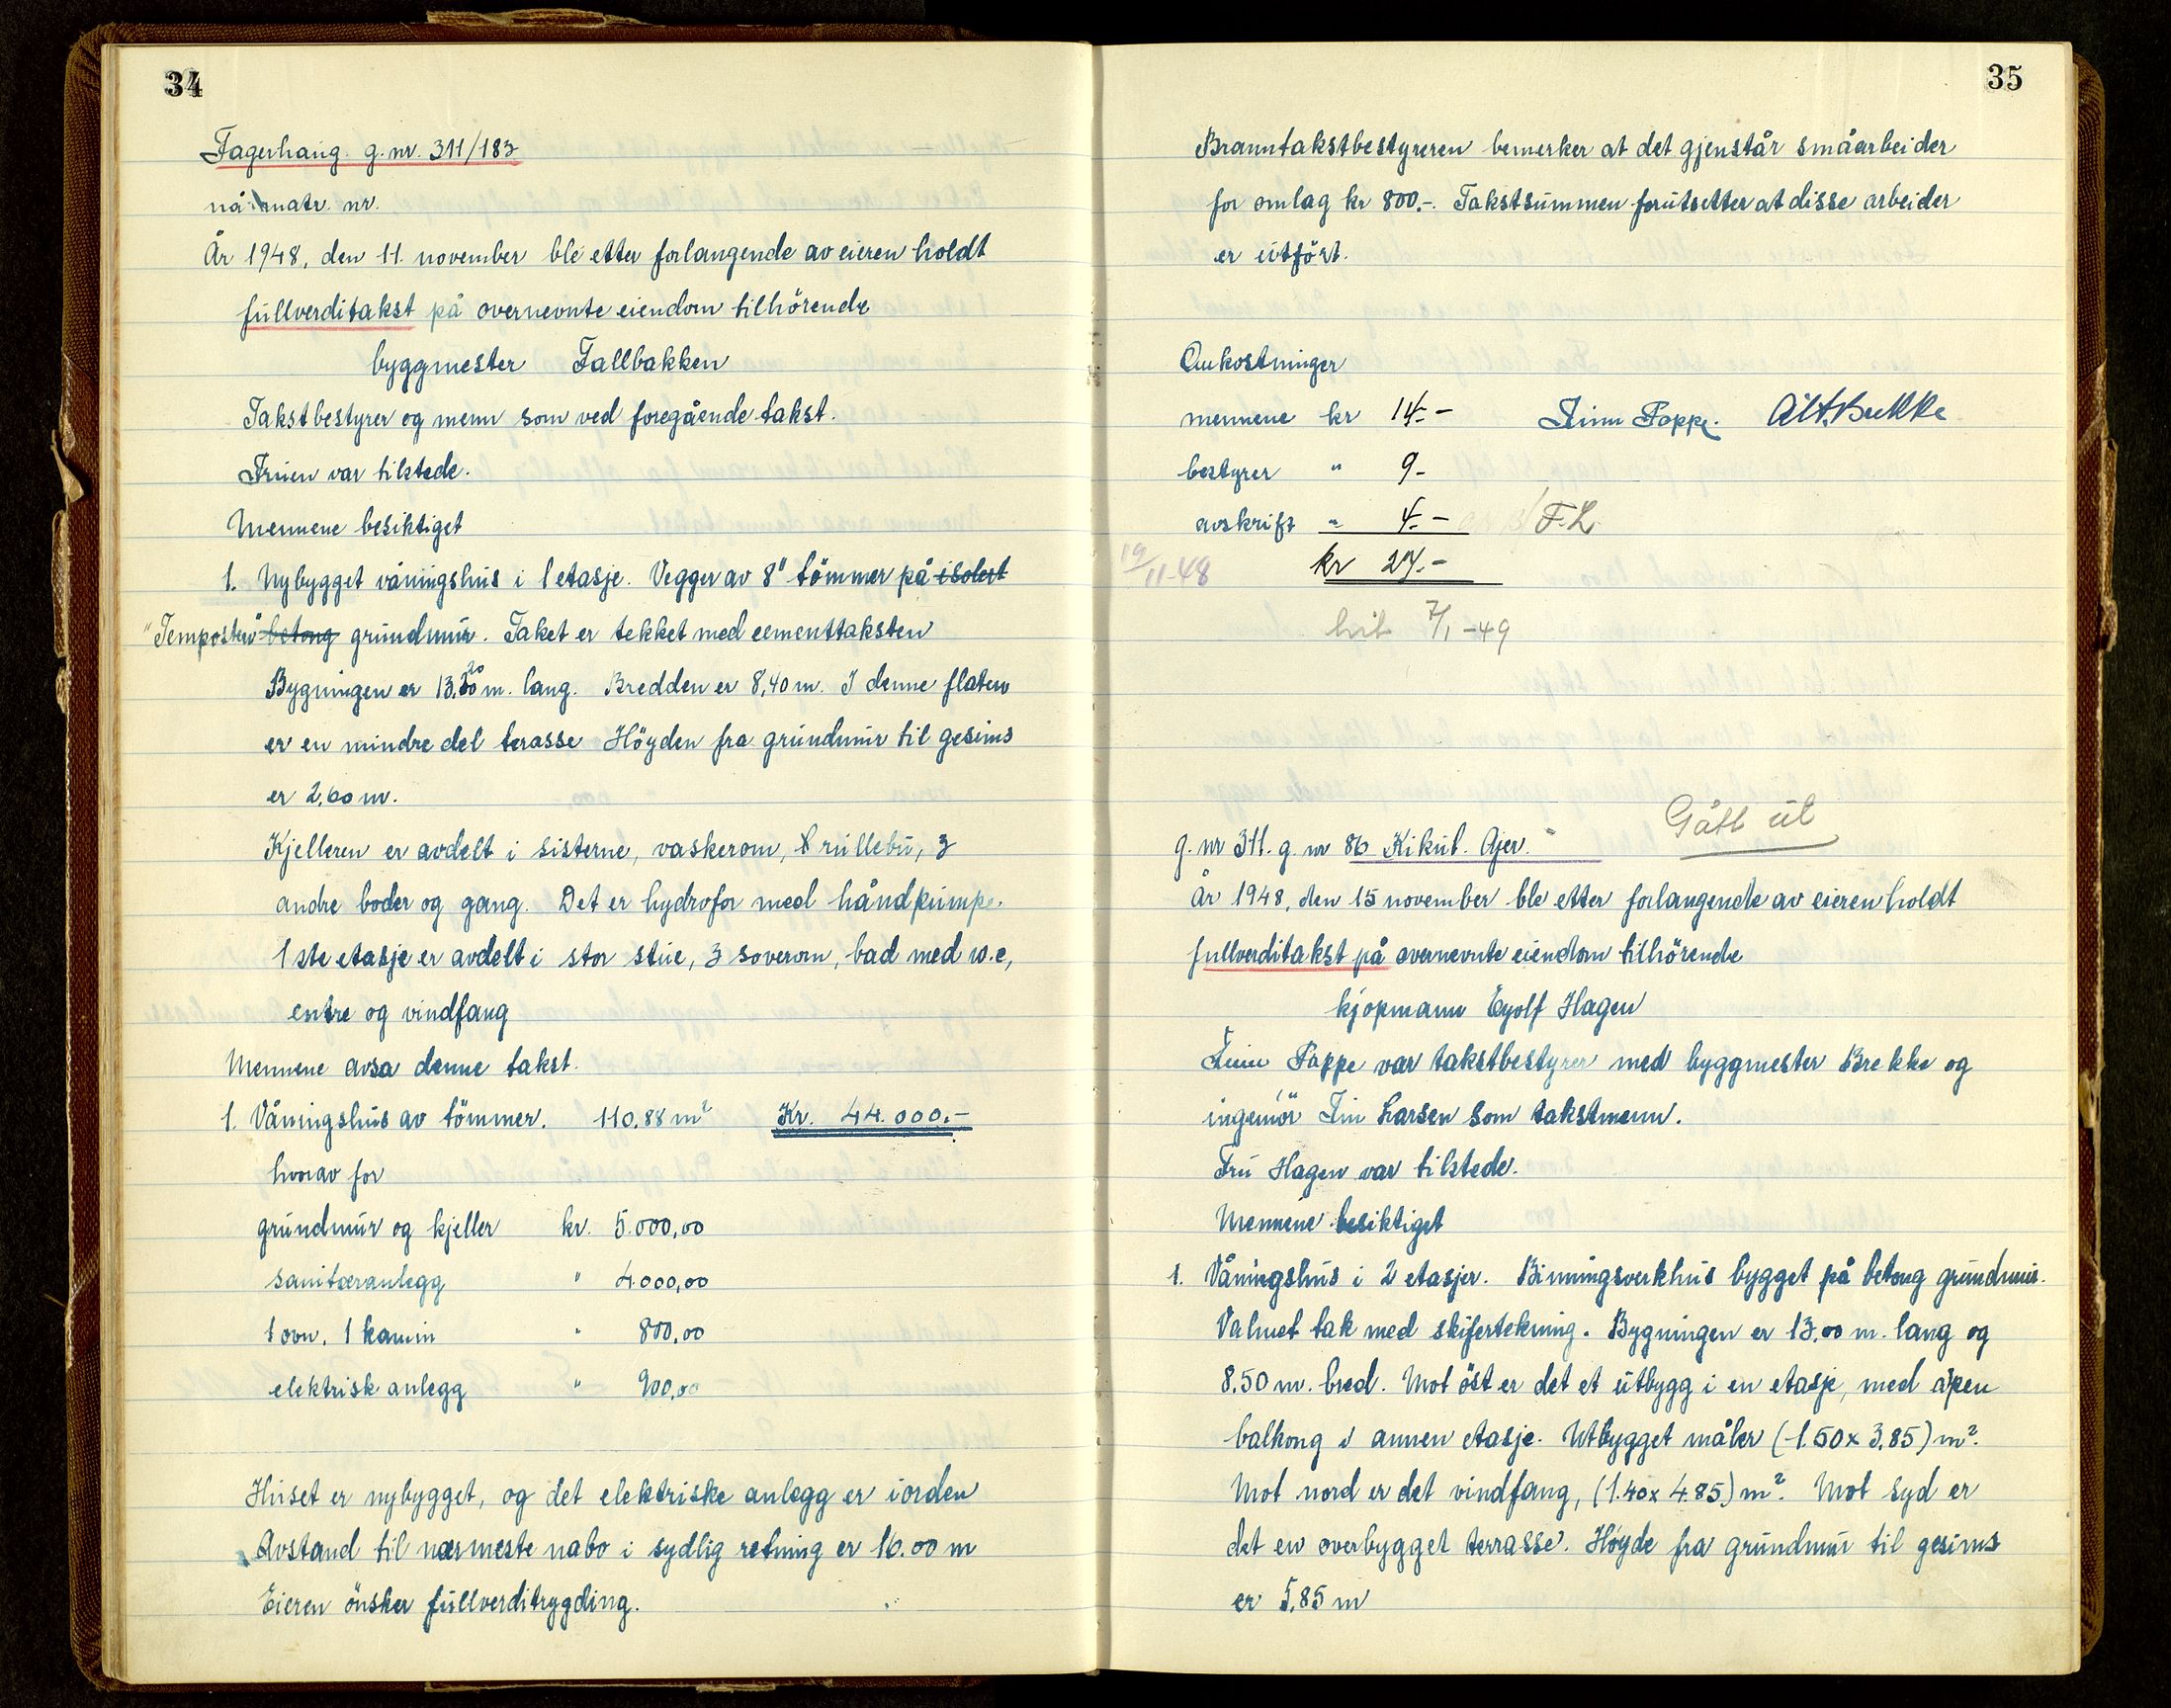 34
Fagerhaug. g.nr. 311/183
nå matr. nr.
År 1948, den 11. november ble etter forlangende av eieren holdt
fullverditakst på overnevnte eiendom tilhörende
byggmester Fallbakken
Takstbestyrer og menn som ved foregående takst.
Fruen var tilstede.
Mennene besiktiget
1. Nybygget våningshus i 1 etasje. Vegger av 8" tömmer på isolert
"Temposten" betong grundmur. Taket er tekket med cementtaksten
Bygningen er 13,20 m. lang. Bredden er 8,40 m. I denne flaten
er en mindre del terasse Höyden fra grundmur til gesims
er 2,60 m.
Kjelleren er avdelt i sisterne, vaskerom, rullebu, 3
andre boder og gang. Det er hydrofor med håndpumpe.
1ste etasje er avdelt i stor stue, 3 soverom, bad med w.c,
entre og vindfang
Mennene avsa denne takst.
1. Våningshus av tömmer. 110,88 m² Kr. 44.000.-
hvorav for
grundmur og kjeller kr. 5.000,00
sanitæranlegg " 4.000,00
1 ovn, 1 kamin " 800,00
elektrisk anlegg " 900,00
Huset er nybygget, og det elektriske anlegg er iorden
Avstand til nærmeste nabo i sydlig retning er 16.00 m
Eieren önsker fullverditrygding.
35
Branntakstbestyreren bemerker at det gjenstår småarbeider
for omlag kr 800.-. Takstsummen forutsetter at disse arbeider
er utfört.
Omkostninger
mennene kr 14.- Finn Poppe. Alf. Brekke
bestyrer " 9-
avskrift " 4.- F.L.
19/11-48 kr 27.-
7/1-49
g. nr 311. g. nr 86 Kikut. Ajer. Gått ut
År 1948, den 15 november ble etter forlangende av eieren holdt
fullverditakst på overnevnte eiendom tilhörende
kjøpmann Eyolf Hagen
Finn Poppe var takstbestyrer med byggmester Brekke og
ingeniör Finn Larsen som takstmenn.
Fru Hagen var tilstede.
Mennene besiktiget
1. Våningshus i 2 etasjer. Binningsverkhus bygget på betong grundmur.
Valmet tak med skifertekning. Bygningen er 13,00 m. lang og
8.50 m. bred. Mot öst er det et utbygg i en etasje, med åpen
balkong i annen etasje. Utbygget måler (1.50 x 3,85) m².
Mot nord er det vindfang, (1.40 x 4.85) m². Mot syd er
det en overbygget terrasse. Høyde fra grundmur til gesims
er 5,85 m